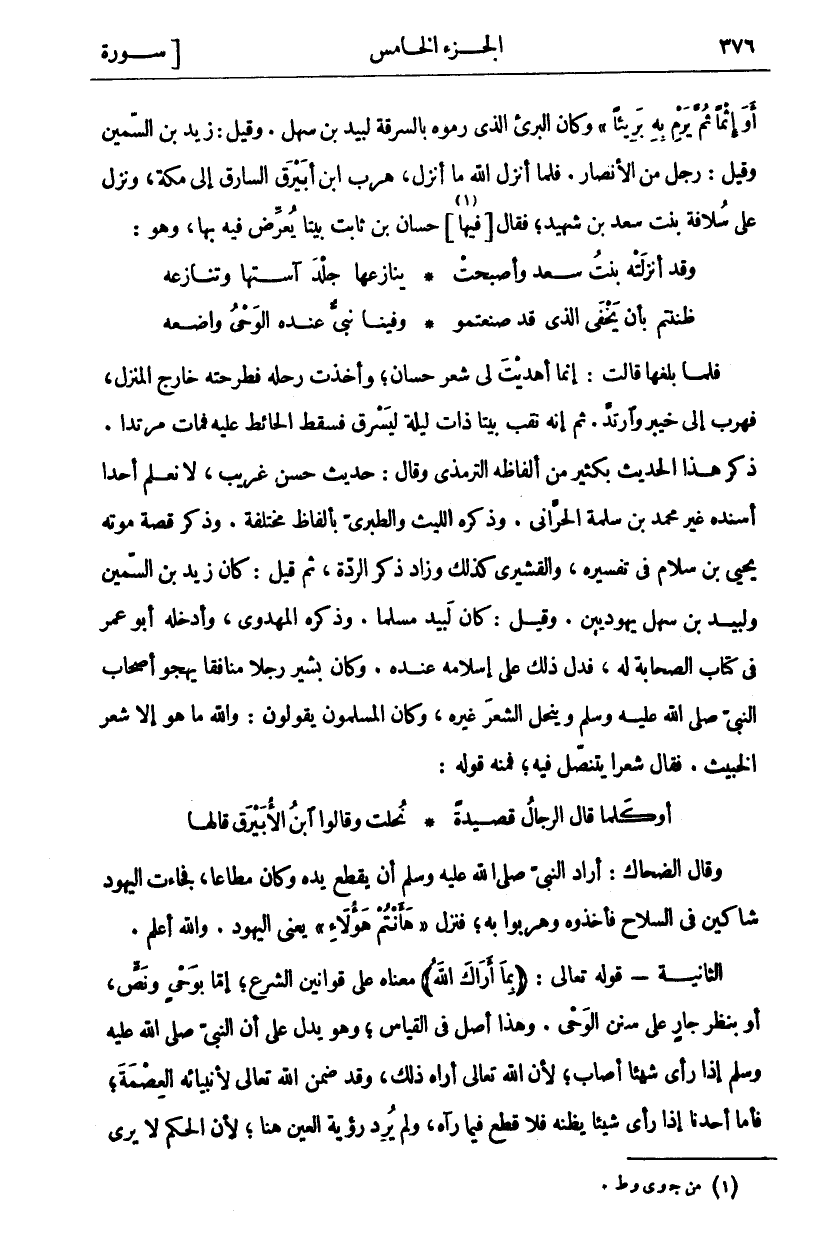 ٣٧٦ الجـــزء الخـامس [ ســـورة
أَوْ إِثْمًا ثُمَّ يَرْمِ بِهِ بَرِيئًا » وكان البرئ الذى رموه بالسرقة لبيد بن سهل . وقيل : زيد بن السّمين
وقيل : رجل من الأنصار . فلما أنزل الله ما أنزل، هرب ابن أُبَيْرَق السارق إلى مكة، ونزل
على سُلافة بنت سعد بن شهيد؛ فقال [ فيها ](١) حسان بن ثابت بيتا يُعرِّض فيه بها، وهو :
وقد أنزلَتْه بنتُ ســعد وأصبحتْ * ينازعها جلْدَ آستـها وتنـازعه
ظننتم بأن يَخْفَى الذى قد صنعتمو * وفينـا نبىٌّ عنـده الوَحْىُ واضـعه
فلمـا بلغها قالت : إنما أهديْتَ لى شعر حسان؛ وأخذت رحله فطرحته خارج المنزل،
فهرب إلى خيبر وآرتدّ . ثم إنه نقب بيتا ذات ليلة ليَسْرق فسقط الحائط عليه فمات مرتدا .
ذكر هـذا الحديث بكثير من ألفاظه الترمذى وقال : حديث حسن غريب ، لا نعـلم أحدا
أسنده غير محمد بن سلمة الحَرّانى . وذكره الليث والطبرىّ بألفاظ مختلفة . وذكر قصة موته
يحيى بن سلام فى تفسيره ، والقشيرى كذلك وزاد ذكر الردّة ، ثم قيل : كان زيد بن السّمين
ولبيـد بن سهل يهوديين . وقيـل : كان لَبيد مسلما . وذكره المهدوى ، وأدخله أبو عمر
فى كتاب الصحابة له ، فدل ذلك على إسلامه عنـده . وكان بشير رجلا منافقا يهجو أصحاب
النبىّ صلى الله عليـه وسلم وينحل الشعرَ غيره ، وكان المسلمون يقولون : والله ما هو إلا شعر
الخبيث . فقال شعرا يتنصّل فيه؛ فمنه قوله :
أوكَلما قال الرجالُ قصـيدةً * نُحلت وقالوا آبنُ الأُبَيْرَق قالهـا
وقال الضحاك : أراد النبىّ صلى الله عليه وسلم أن يقطع يده وكان مطاعا، فجاءت اليهود
شاكين فى السلاح فأخذوه وهربوا به؛ فنزل « هَأَنْتُمْ هَؤُلَاءِ » يعنى اليهود . والله أعلم .
الثانيــة – قوله تعالى : ﴿ بِمَا أَرَاكَ اللّهُ ﴾ معناه على قوانين الشرع؛ إمّا بوَحْىٍ ونَصٍّ،
أو بنظر جارٍ على سنن الوَحْى . وهذا أصل فى القياس ؛ وهو يدل على أن النبىّ صلى الله عليه
وسلم إذا رأى شيئا أصاب؛ لأن الله تعالى أراه ذلك، وقد ضمن الله تعالى لأنبيائه العِصْمَةَ؛
فأما أحدنا إذا رأى شيئا يظنه فلا قطع فيما رآه، ولم يُرِد رؤية العين هنا ؛ لأن الحكم لا يرى
(١) من جـ وى وط .